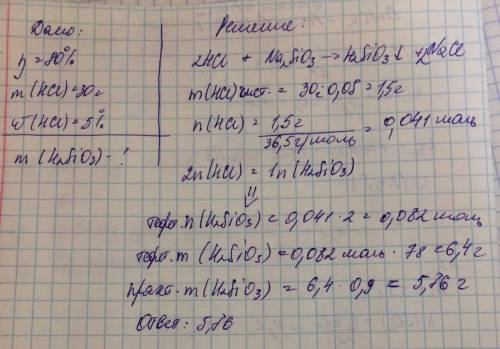 Дано:
η = 90%
m (HCl) = 30г
ω (HCl) = 5%
m (H₂SiO₃) - ?
Решение:
2HCl + Na₂SiO₃ → H₂SiO₃↓ + 2NaCl
m(HCl) чист. = 30г · 0,05 = 1,5г
n(HCl) = 1,5г / 36,5г/моль = 0,041 моль
2n(HCl) = 1n(H₂SiO₃)
⇓
теорет. n(H₂SiO₃) = 0,041 · 2 = 0,082 моль
теорет. m (H₂SiO₃) = 0,082 моль · 78 = 6,4г
практ. m(H₂SiO₃) = 6,4 · 0,9 = 5,76 г
Ответ: 5,76